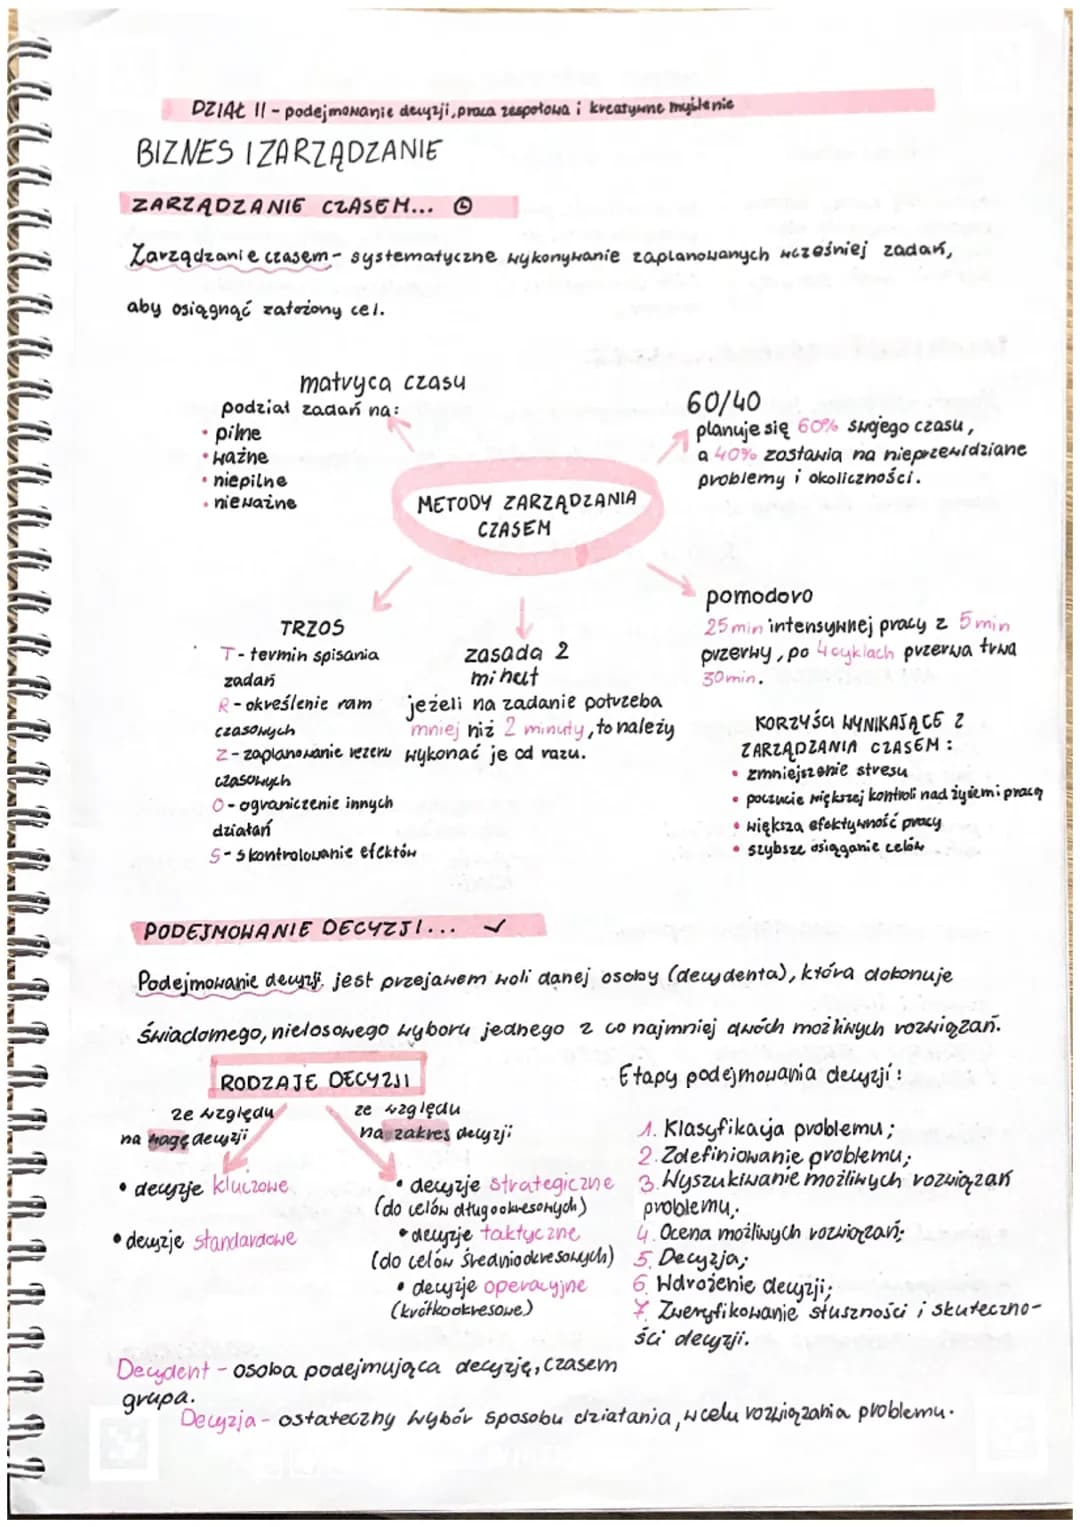 DZIAŁ II - podejmowanie decyzji, praca zespołowa i kreatywne myślenie
BIZNES I ZARZĄDZANIE
ZARZĄDZANIE CZASEM...
Zarządzanie czasem - systematyczne wykonywanie zaplanowanych wcześniej zadań,
aby osiągnąć założony cel.
matryca czasu
podział zadań na:
• pilne
• ważne
• niepilne
• nieważne
60/40
planuje się 60% swojego czasu,
a 40% zostawia na nieprzewidziane
problemy i okoliczności.
METODY ZARZĄDZANIA
CZASEM
TRZOS
T - termin spisania
zadań
R - określenie ram
czasowych
Z - zaplanowanie rezerw
czasowych
O - ograniczenie innych
działań
S - skontrolowanie efektów
zasada 2
minut
jeżeli na zadanie potrzeba
mniej niż 2 minuty, to należy
wykonać je od razu.
pomodoro
25 min intensywnej pracy z 5 min
przerwy, po 4 cyklach przerwa trwa
30 min.
KORZYŚCI WYNIKAJĄCE Z
ZARZĄDZANIA CZASEM:
• zmniejszenie stresu
• poczucie większej kontroli nad życiem i pracą
• większa efektywność pracy
• szybsze osiąganie celów
PODEJMOWANIE DECYZJI... ✓
Podejmowanie decyzji jest przejawem woli danej osoby (decydenta), która dokonuje
świadomego, nielosowego wyboru jednego z co najmniej dwóch możliwych rozwiązań.
RODZAJE DECYZJI
ze względu
na wagę decyzji
• decyzje kluczowe
• decyzje standardowe
ze względu
na zakres decyzji
• decyzje strategiczne
(do celów długookresowych)
• decyzje taktyczne
(do celów średniookresowych)
• decyzje operacyjne
(krótkookresowe)
Etapy podejmowania decyzji:
1. Klasyfikacja problemu;
2. Zdefiniowanie problemu;
3. Wyszukiwanie możliwych rozwiązań
problemu;
4. Ocena możliwych rozwiązań;
5. Decyzja;
6. Wdrożenie decyzji;
7. Zweryfikowanie słuszności i skuteczno-
ści decyzji.
Decydent - osoba podejmująca decyzję, czasem
grupa.
Decyzja - ostateczny wybór sposobu działania, w celu rozwiązania problemu.